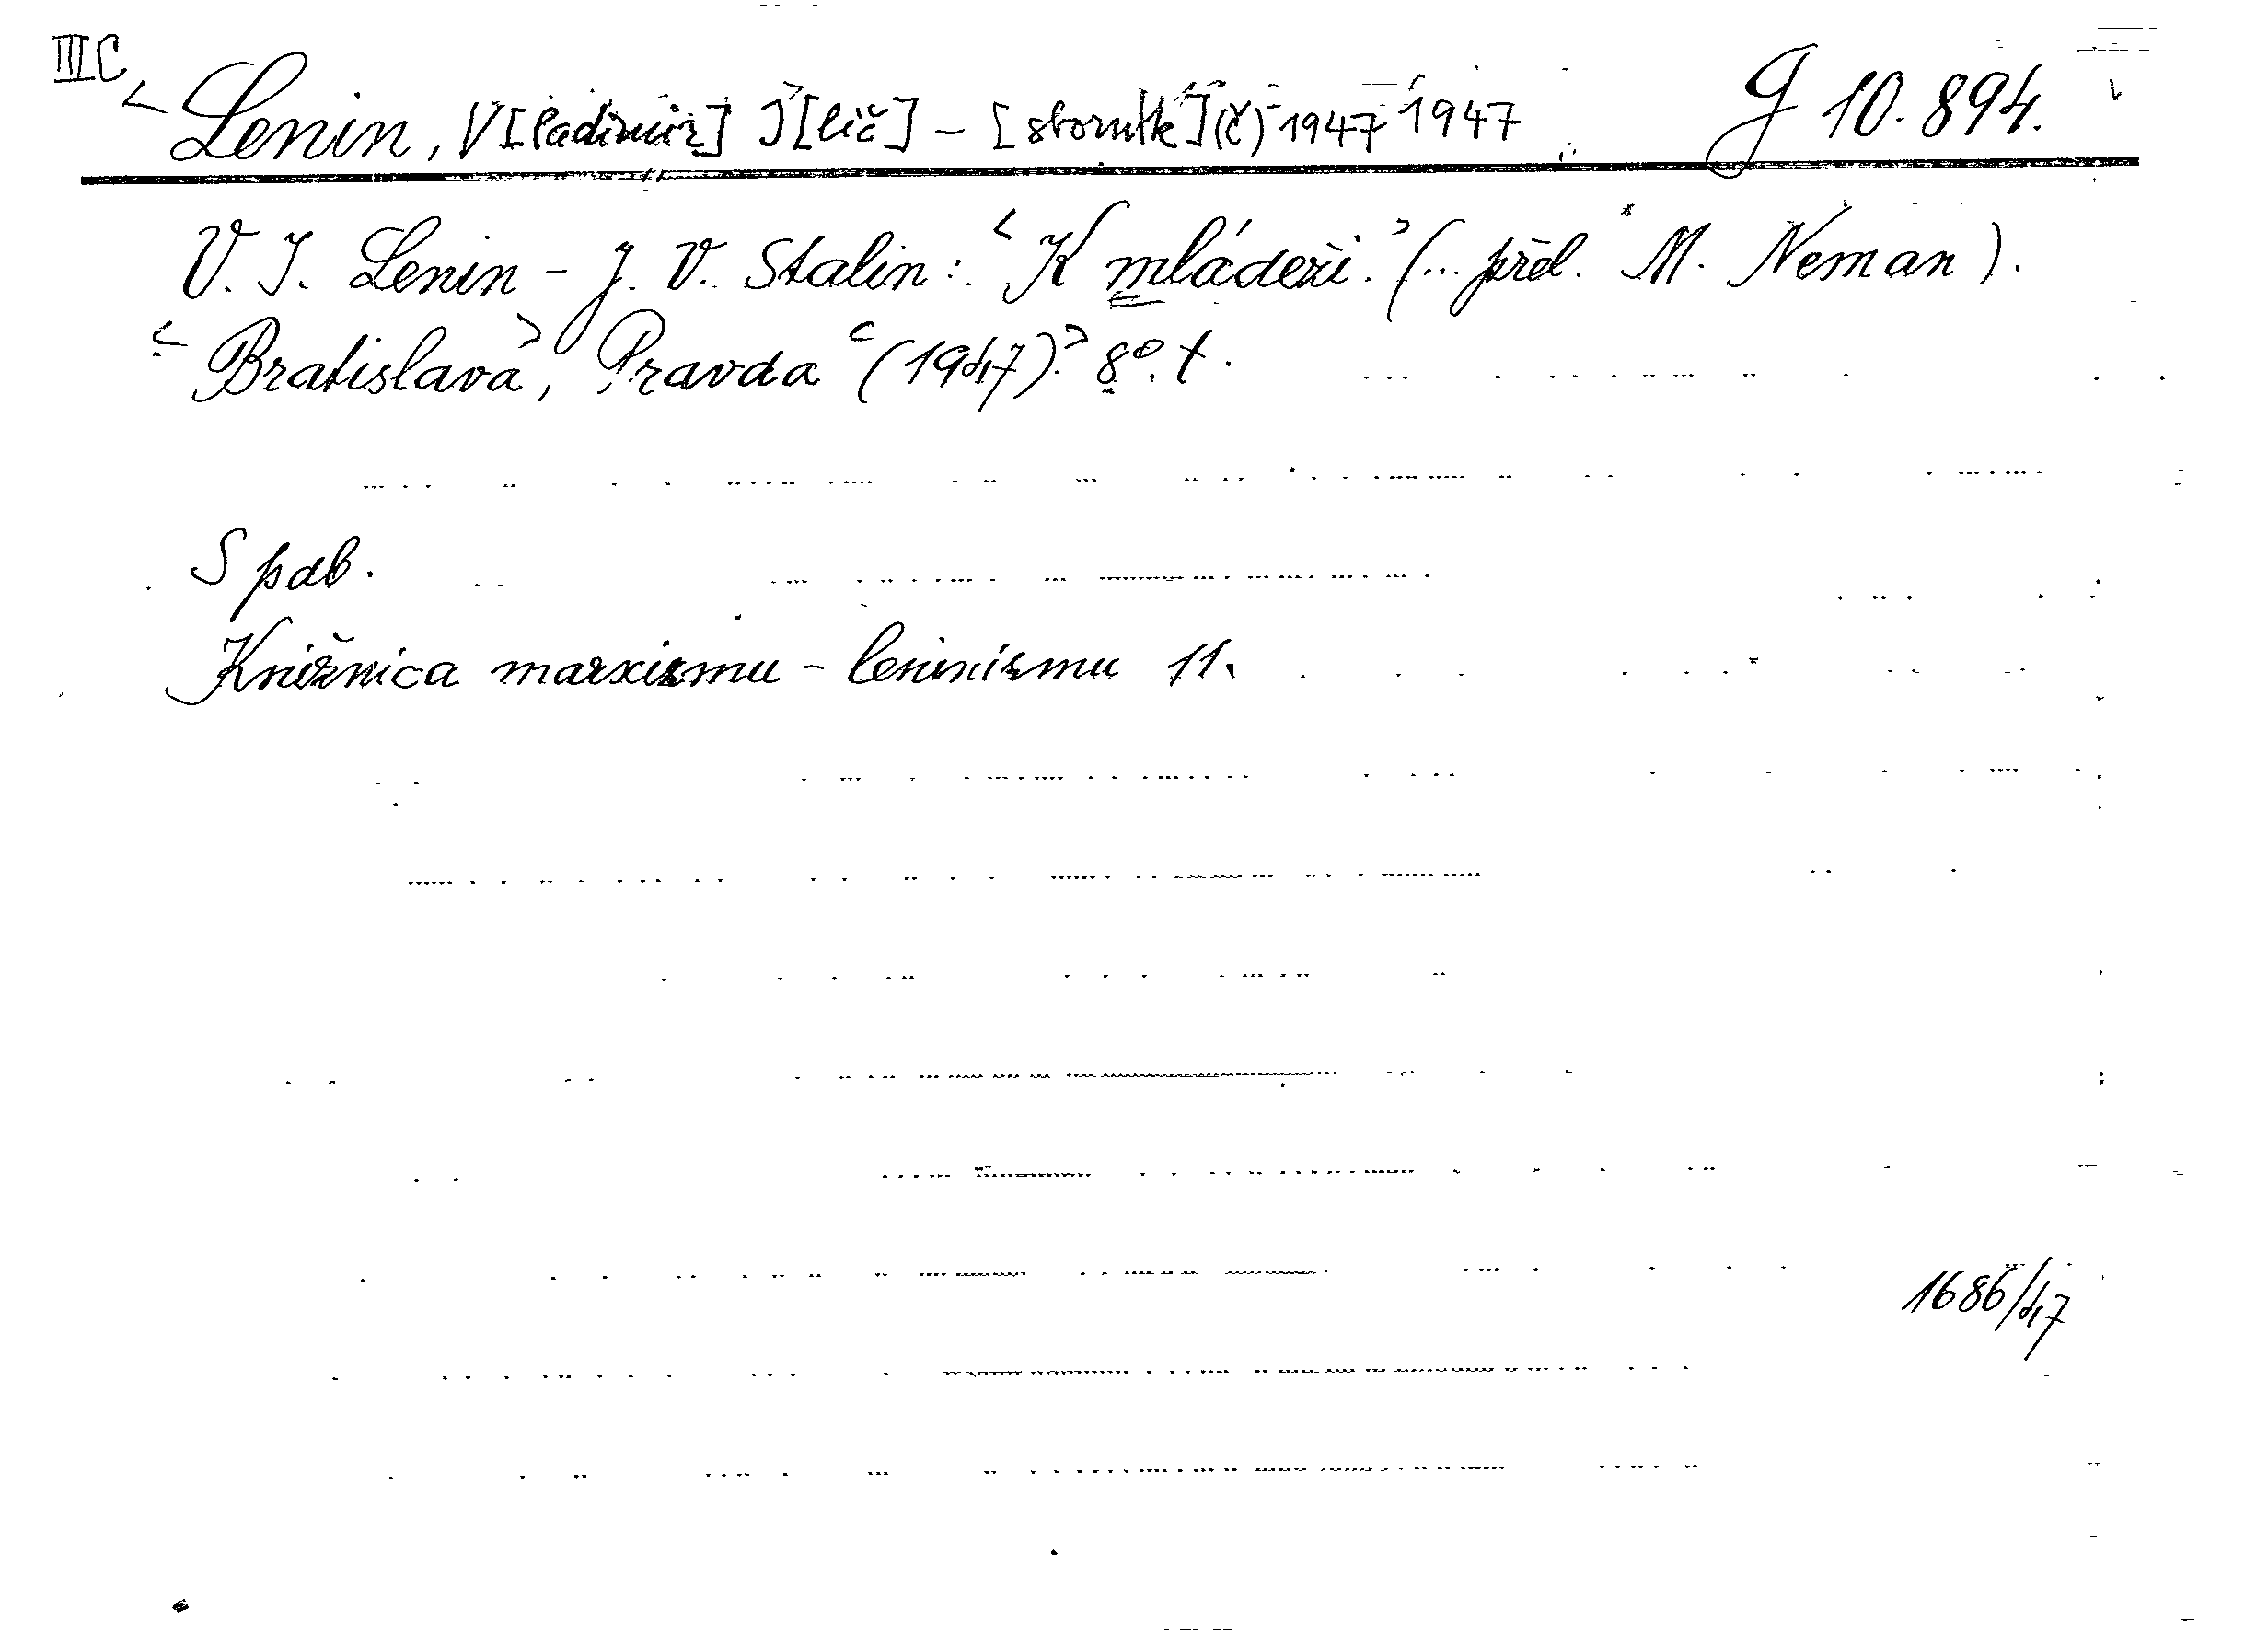 III C
<Lenin, V[ladimir] I[lič] – [sborník] (č) 1947 1947 G 10.894.
V. I. Lenin – J. V. Stalin: <K mládeži.> (... přel. M. Neman).
<Bratislava>, Pravda <(1947).> 8°. t.
S pdb.
Knižnica marxizmu – leninizmu 11.
1686/47